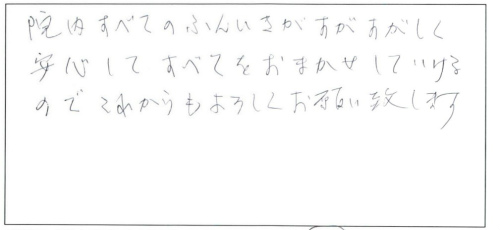 院内すべてのふんいきがすがすがしく
安心してすべてをおまかせしていける
のでこれからもよろしくお願い致します